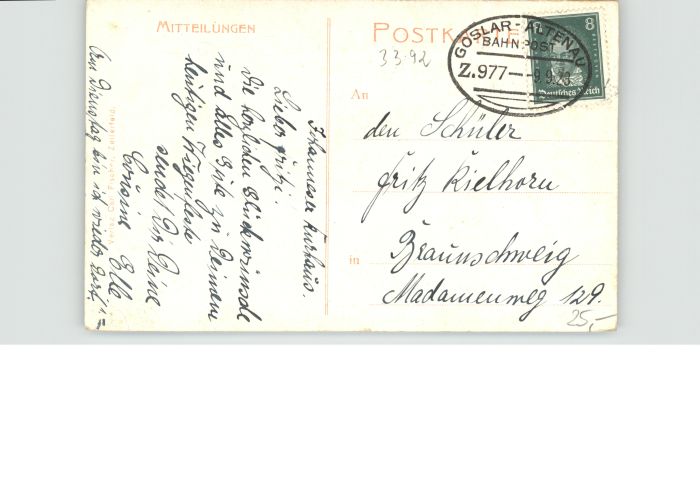 MITTEILUNGEN
POSTKARTE
33.92
GOSLAR-ALTENAU
BAHNPOST
Z.977
8
Deutsches Reich
An
den Schüler
Fritz Kielhorn
in
Braunschweig
Madamenweg 129.
25,-
Johanneser Kurhaus.
Lieber Fritz!
Die herzlichen Glückwünsche
und alles Gute zu Deinem
heutigen Wiegenfeste
sendet Dir Deine
Cousine Elle
Am Dienstag bin ich wieder dort!